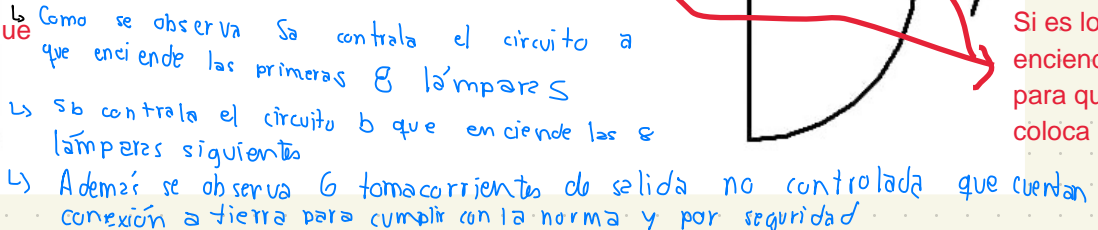 ue
↳ Como se observa Sa contrala el circuito a
que enciende las primeras 8 lámparas
↳ Sb contrala el circuito b que enciende las 8
lámparas siguientes
↳ Además se observa 6 tomacorrientes de salida no controlada que cuentan
conexión a tierra para cumplir con la norma y por seguridad
Si es lo
enciend
para qu
coloca